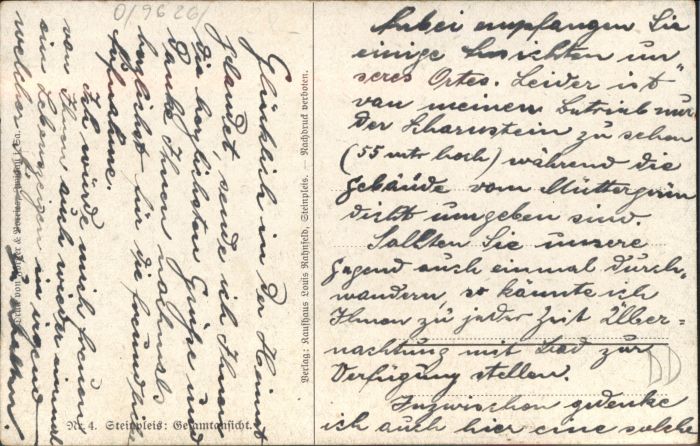 0/9626/
Glücklich in der Heimat
gelandet, sende ich Ihnen
die herzlichsten Grüße und
danke Ihnen nochmals
herzlichst für die freundliche
Aufnahme.
Ich würde mich freuen
von Ihnen auch wieder einmal
ein Lebenszeichen in irgend
welcher
Nr. 4. Steinpleis: Gesamtansicht.
Verlag: Kaufhaus Louis Rahnfeld, Steinpleis. — Nachdruck verboten.
Anbei empfangen Sie
einige Ansichten un-
seres Ortes. Leider ist
von meinem Betrieb nur
der Schornstein zu sehen
(55 mtr hoch) während die
Gebäude vom Müttergrün
dicht umgeben sind.
Sollten Sie unsere
Gegend auch einmal durch-
wandern, so könnte ich
Ihnen zu jeder Zeit Über-
nachtung mit Bad zur
Verfügung stellen.
Inzwischen gedenke
ich auch hier eine solche